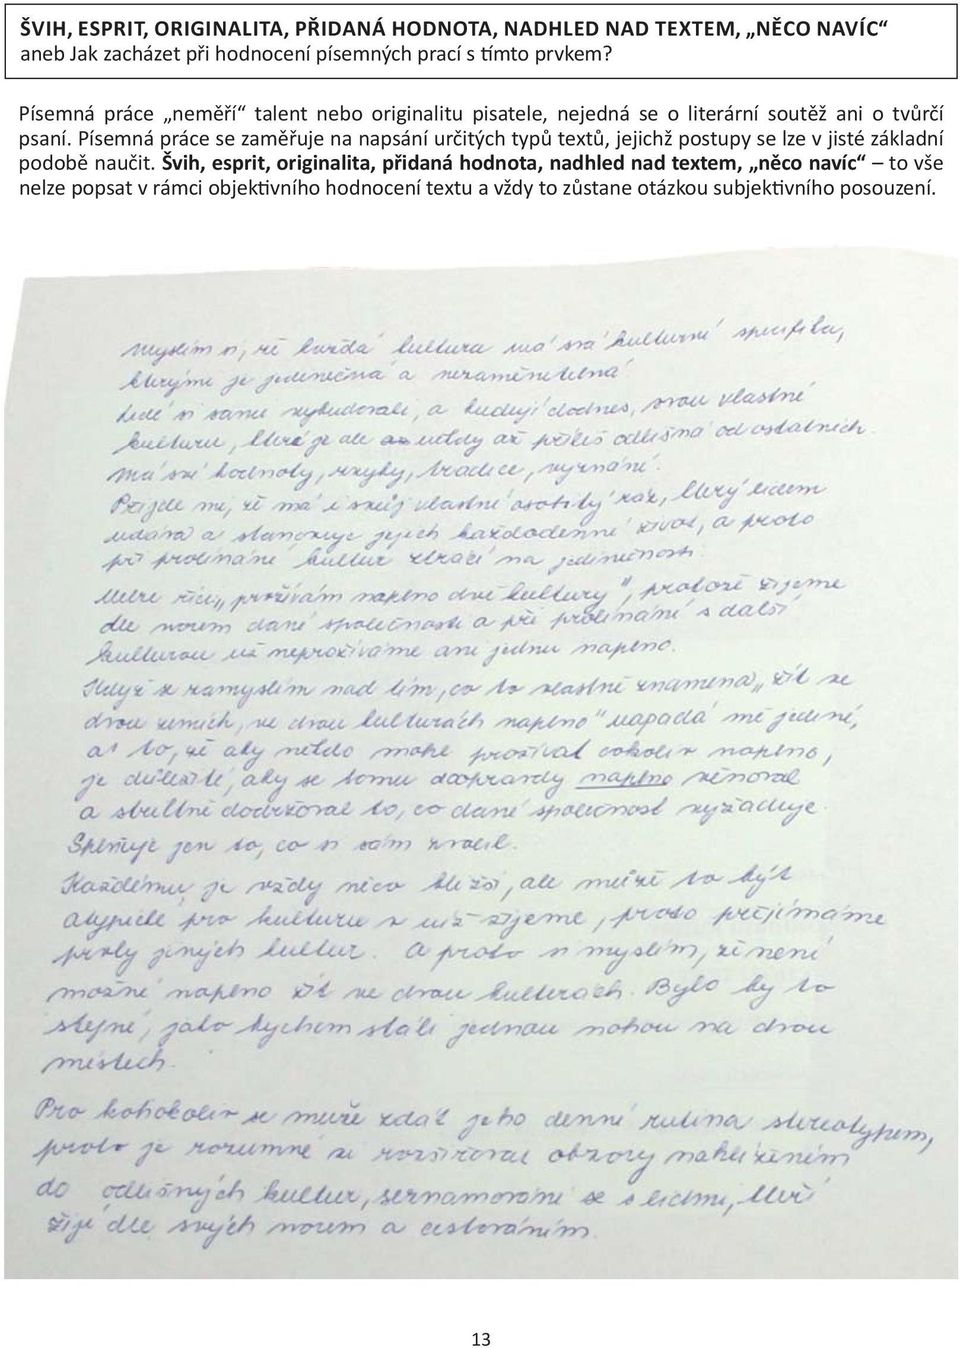 ŠVIH, ESPRIT, ORIGINALITA, PŘIDANÁ HODNOTA, NADHLED NAD TEXTEM, „NĚCO NAVÍC“
aneb Jak zacházet při hodnocení písemných prací s tímto prvkem?
Písemná práce „neměří“ talent nebo originalitu pisatele, nejedná se o literární soutěž ani o tvůrčí
psaní. Písemná práce se zaměřuje na napsání určitých typů textů, jejichž postupy se lze v jisté základní
podobě naučit. Švih, esprit, originalita, přidaná hodnota, nadhled nad textem, „něco navíc“ – to vše
nelze popsat v rámci objektivního hodnocení textu a vždy to zůstane otázkou subjektivního posouzení.
Myslím si, že každá kultura má svá kulturní specifika,
kterými je jedinečná a nezaměnitelná
Lidé si sami vybudovali, a budují dodnes, svou vlastní
kulturu, která je ale někdy až příliš odlišná od ostatních.
Má své hodnoty, zvyky, tradice, vyznání.
Přijde mi, že má i svůj vlastní osobitý ráz, který lidem
udává a stanovuje jejich každodenní život, a proto
při prolínání kultur ztrácí na jedinečnosti.
Nelze říci „prožívám naplno dvě kultury", protože žijeme
dle norem dané společnosti a při prolínání s další
kulturou už neprožíváme ani jednu naplno.
Když se zamyslím nad tím, co to vlastně znamená „žít ve
dvou zemích, ve dvou kulturách naplno" napadá mě jediné,
a to, že aby někdo mohl prožívat cokoliv naplno,
je důležité, aby se tomu doopravdy naplno věnoval
a striktně dodržoval to, co daná společnost vyžaduje.
jen to, co si sám zvolil.
Každému je vždy něco bližší, ale může to být
atypické pro kulturu v níž žijeme, proto přijímáme
prvky jiných kultur. A proto si myslím, že není
možné naplno žít ve dvou kulturách. Bylo by to
stejné, jako bychom stáli jednou nohou na dvou
místech.
Pro kohokoliv se může zdát jeho denní rutina stereotypem,
proto je rozumné si rozšiřovat obzory nahlížením
do odlišných kultur, seznamování se s lidmi, kteří
žijí dle svých norem a cestováním.
13